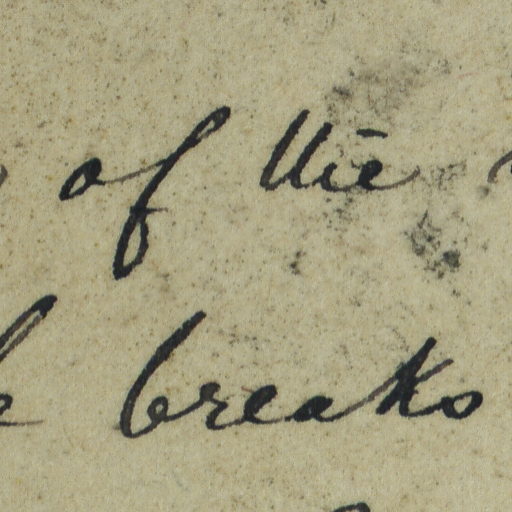 of the
breaks